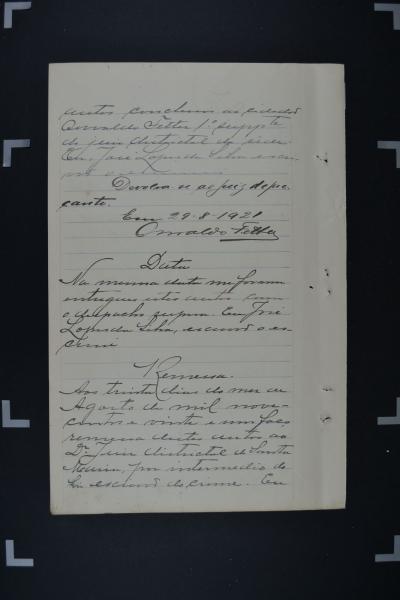 autos conclusos ao cidadão
Oswaldo Fetter 1º suppte
do juiz districtal da séde.
Eu, José Lopes da Silva escri-
Devolva-se ao juiz depre-
cante.
Em 29-8-1921
Oswaldo Fetter
Data
Na mesma data me foram
entregues estes autos com
o despacho supra. Eu José
Lopes da Silva, escrivão o es-
crevi
Remessa.
Aos trinta dias do mez de
Agosto de mil nove-
centos e vinte e um faço
remessa destes autos ao
Dr. Juiz districtal de Santa
Maria, por intermedio do
escrivão do crime. Eu